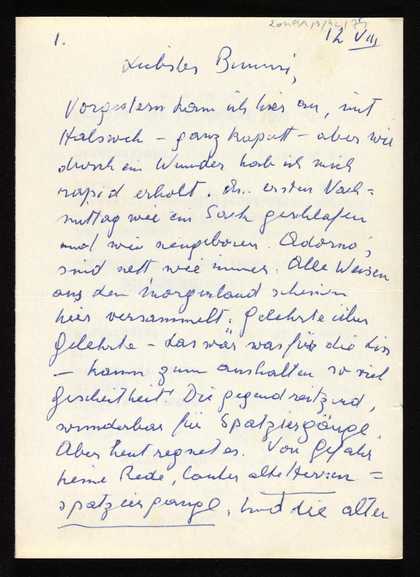 1.
12 VIII
Liebster Bimini,
Vorgestern kam ich hier an, mit
Halsweh – ganz kaputt – aber wie
durch ein Wunder hab ich mich
rapid erholt. Am ersten Nach=
mittag wie ein Sack geschlafen
und wie neugeboren. Adorno's
sind nett wie immer. Alle Weisen
aus dem Morgenland scheinen
hier versammelt. Gelehrte über
Gelehrte – das wär was für die Lis
– kaum zum aushalten so viel
Gescheitheit! Die Gegend reitzend,
wunderbar für Spatziergänge.
Aber heut regnet es. Von Gefahr
keine Rede, lauter alte Herren =
spatziergänge, und die alten